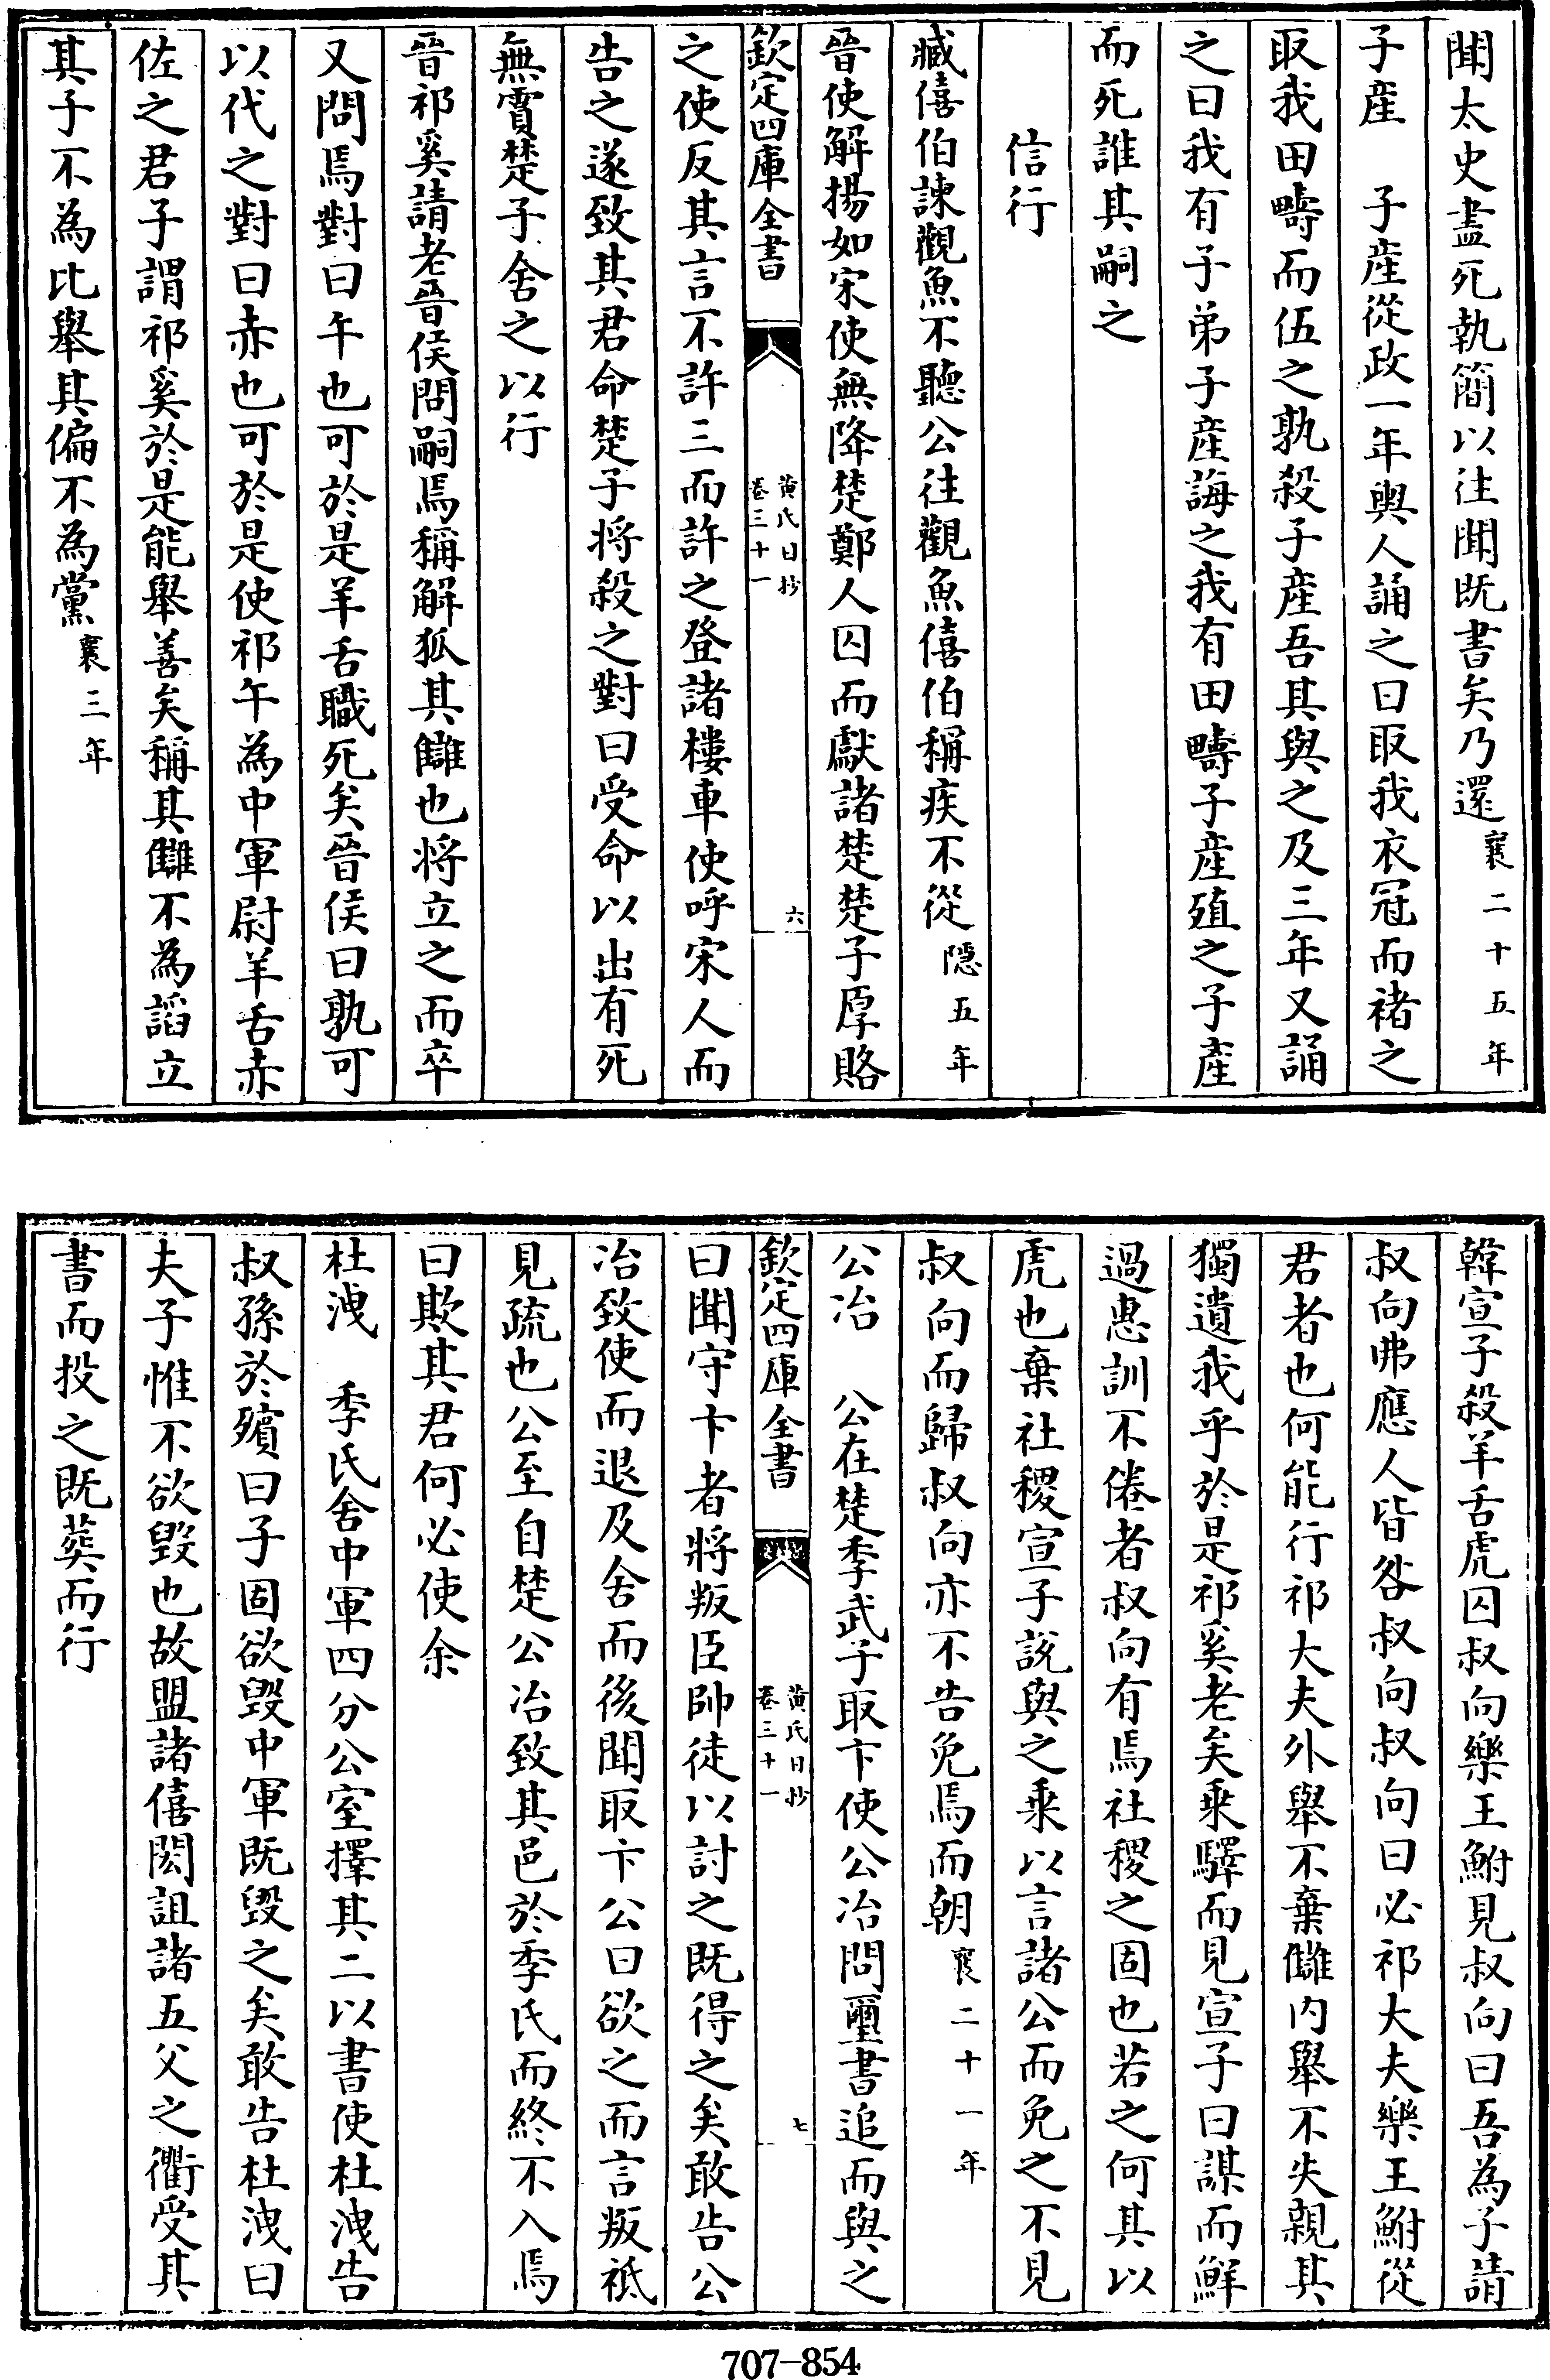 聞太史盡死執簡以往聞既書矣乃還襄二十五年
子産　子産從政一年輿人誦之曰取我衣冠而褚之
取我田疇而伍之孰殺子産吾其與之及三年又誦
之曰我有子弟子産誨之我有田疇子産殖之子產
而死誰其嗣之
信行
臧僖伯諫觀魚不聽公往觀魚僖伯稱疾不從隱五年
晉使解揚如宋使無降楚鄭人囚而獻諸楚楚子厚賂
欽定四庫全書
黄氏日抄
卷三十一
六
之使反其言不許三而許之登諸樓車使呼宋人而
告之遂致其君命楚子將殺之對曰受命以出有死
無霣楚子舍之以行
晉祁奚請老晉侯問嗣焉稱解狐其讎也將立之而卒
又問焉對曰午也可於是羊舌職死矣晉侯曰孰可
以代之對曰赤也可於是使祁午為中軍尉羊舌赤
佐之君子謂祁奚於是能舉善矣稱其讎不為謟立
其子不為比舉其偏不為黨襄三年
韓宣子殺羊舌虎囚叔向樂王鮒見叔向曰吾為子請
叔向弗應人皆咎叔向叔向曰必祁大夫樂王鮒從
君者也何能行祁大夫外舉不棄讎内舉不失親其
獨遺我乎於是祁奚老矣乘驛而見宣子曰謀而鮮
過惠訓不倦者叔向有焉社稷之固也若之何其以
虎也棄社稷宣子説與之乘以言諸公而免之不見
叔向而歸叔向亦不告免焉而朝襄二十一年
公冶　公在楚季武子取卞使公冶問璽書追而與之
欽定四庫全書
黄氏日抄
卷三十一
七
曰聞守卞者將叛臣帥徒以討之既得之矣敢告公
冶致使而退及舍而後聞取卞公曰欲之而言叛祇
見疏也公至自楚公冶致其邑於季氏而終不入焉
曰欺其君何必使余
杜洩　季氏舍中軍四分公室擇其二以書使杜洩告
叔孫於殯曰子固欲毀中軍既毀之矣敢告杜洩曰
夫子惟不欲毀也故盟諸僖閎詛諸五父之衢受其
書而投之既葬而行
707-854